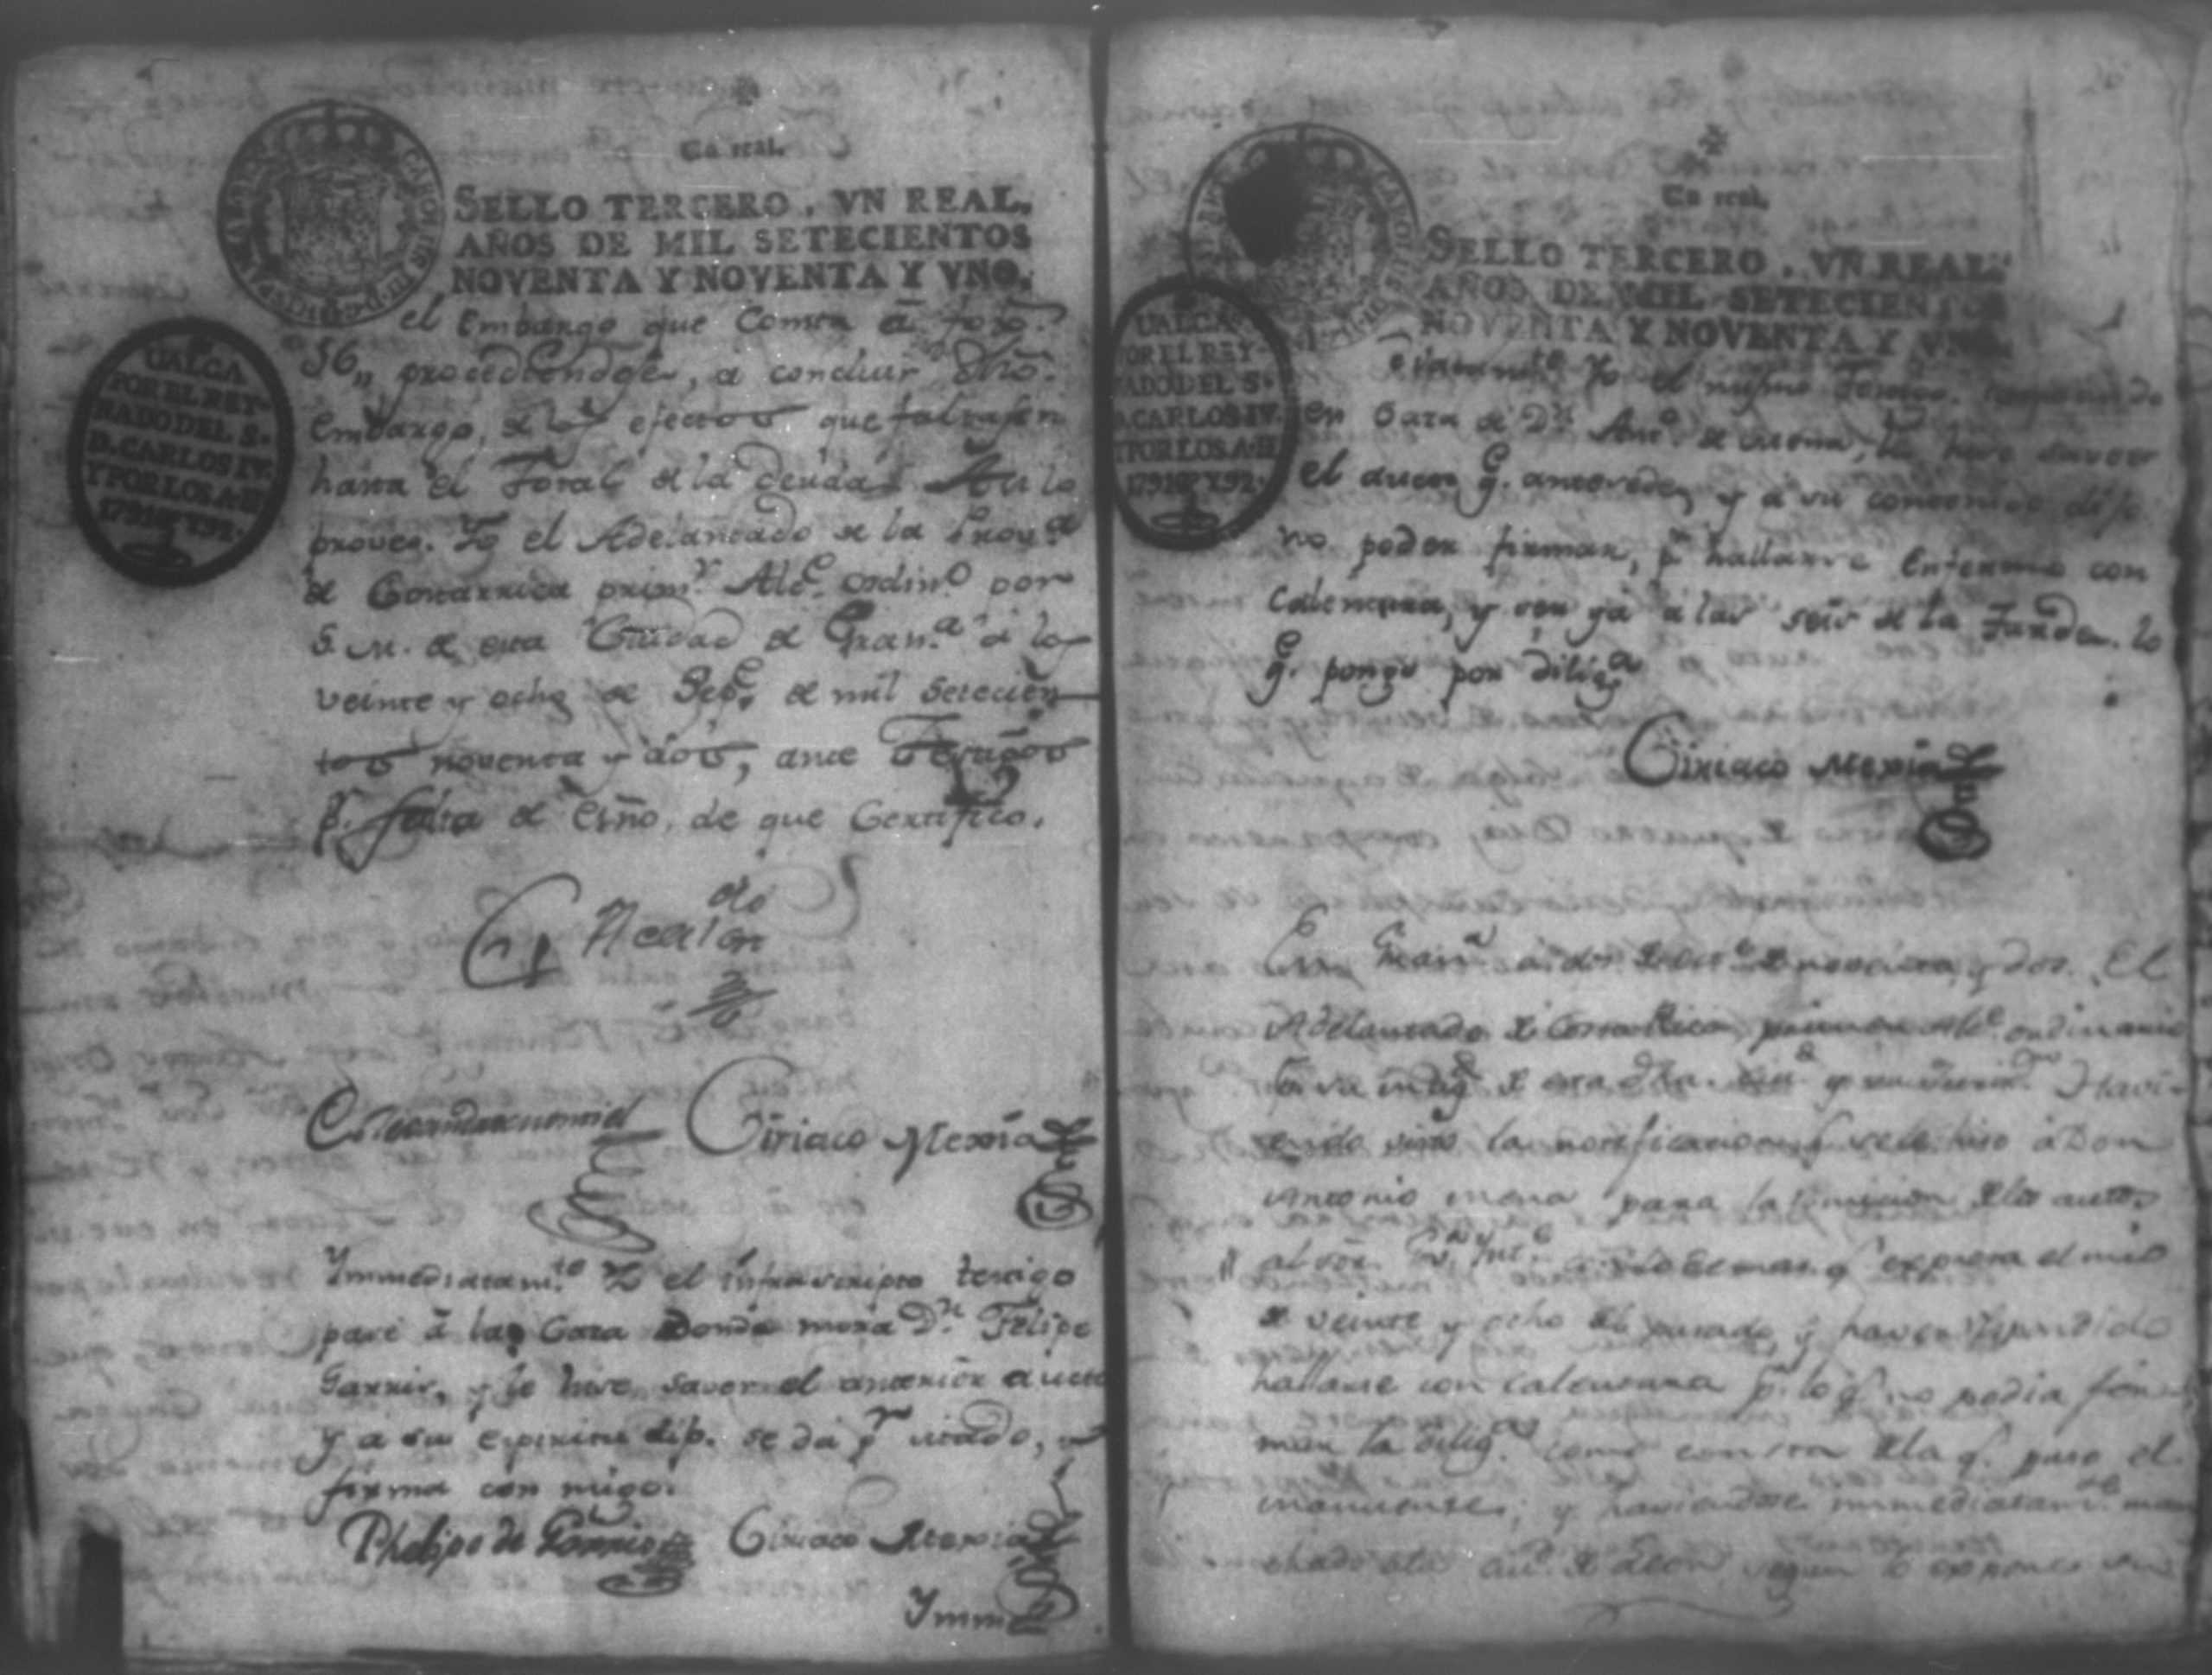 Un real.
SELLO TERCERO, VN REAL,
AÑOS DE MIL SETECIENTOS
NOVENTA Y NOVENTA Y VNO.
UALGA
POR EL REY-
NADO DEL S.
D. CARLOS IV.
Y POR LOS A. D
1791 Y 92.
el embargo que consta à foxs.
36,, procediendose, à concluir dho.
embargo, de los efectos que faltasen
hasta el Total de la deuda. Asi lo
proveo. Yo el Adelantado de la Prova
de Costarrica primr. Alce. ordino por
S. M. de esta Ciudad de Grana. à los
veinte y ocho de Sepe. de mil setecien
tos noventa y dos, ante Testigos
pr. falta de Esño. de que Certifico.
El Adelando
Ciriaco Mexia
Ymmediatamte. Yo el infrascripto testigo
pasé à la Casa donde mora Dn. Felipe
Garnir, y le hise saver el anterior aucto
y a su espiritu dijo. se dà pr. citado, y
firma con migo.
Phelipe de Ciriaco Mexia
Ymme
Un real.
SELLO TERCERO, VN REAL,
AÑOS DE MIL SETECIENTOS
NOVENTA Y NOVENTA Y VNO.
UALGA
POR EL REY-
NADO DEL S.
D. CARLOS IV.
Y POR LOS A. D
1791 Y 92.
diatamte. Yo el mismo Testigo
en Casa de Dn. Anto. de Mena, le hise saver
el aucto q. antesede, y à su contenido dijo
no poder firmar, pr. hallarse enfermo con
calentura, y ser yà a las seis de la Tarde. lo
q. pongo por diliga.
Ciriaco Mexia
En Grana. à dos de de noventa, y dos. El
Adelantado de Costa Rica, primer Alce. ordinario
por su Magd. de esta dha. y su
endo visto la notificacion q. se le hiso à Don
Antonio Mena para la remicion de los autos
al sor. q. expresa el mio
de veinte y ocho del pasado, y haver respondido
hallarse con calentura pr. lo q. no podia fir-
mar la dilig. como consta de la q. puso el
amanuense; y haviendose immediatamte. mar
chado à la de Leon, segun lo expone